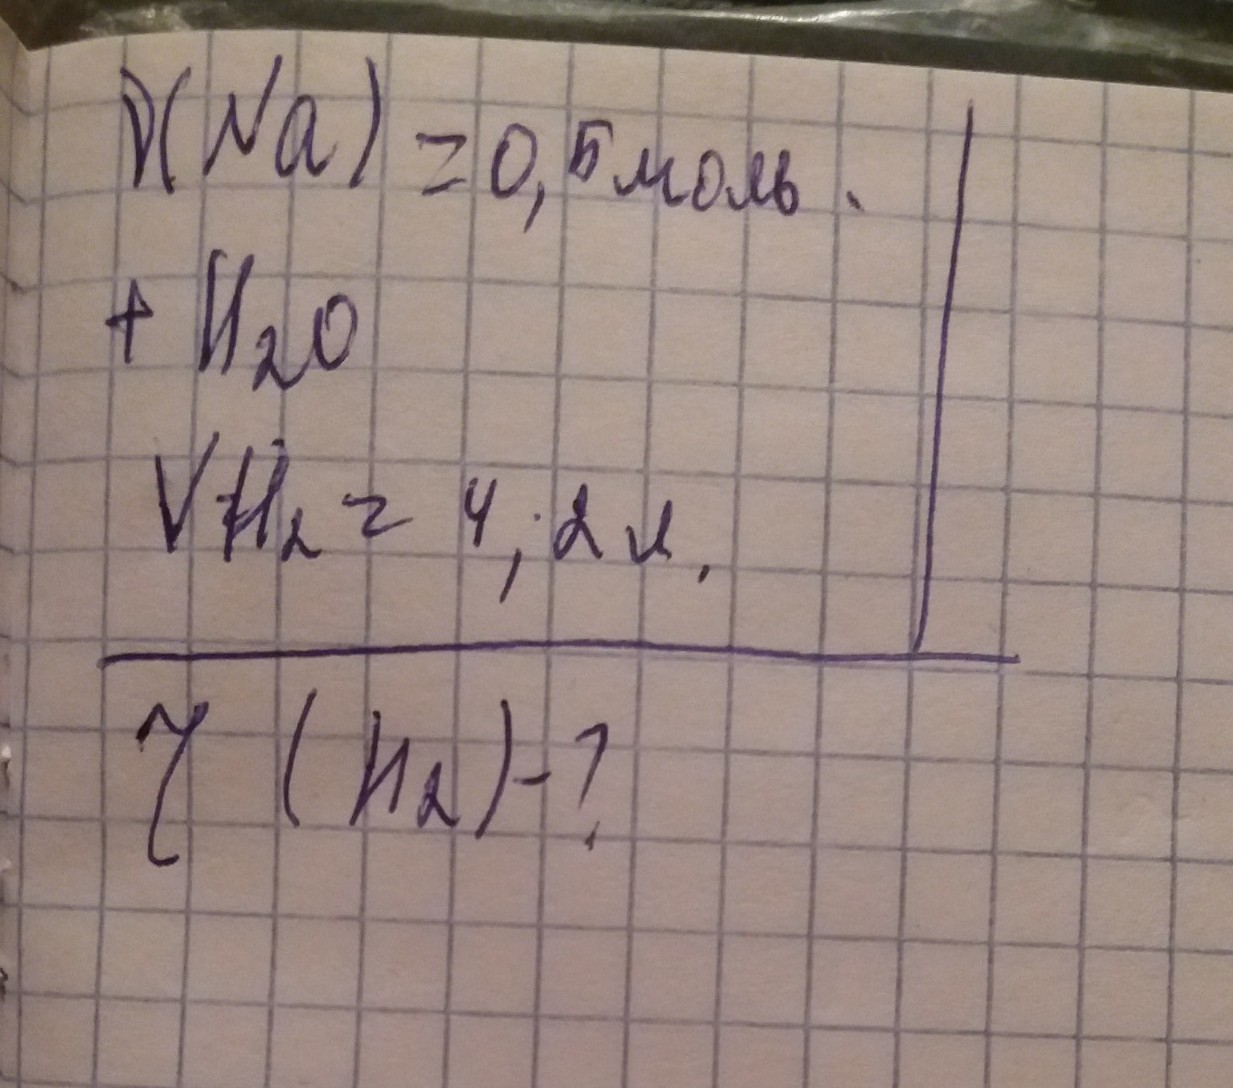 ν(Na) = 0,5 моль.
+ H₂O
VH₂ = 4,2 л.
η (H₂) - ?